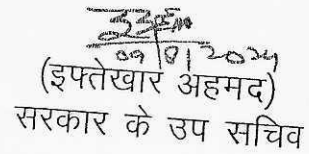 09/8/2024
(इफ्तेखार अहमद)
सरकार के उप सचिव